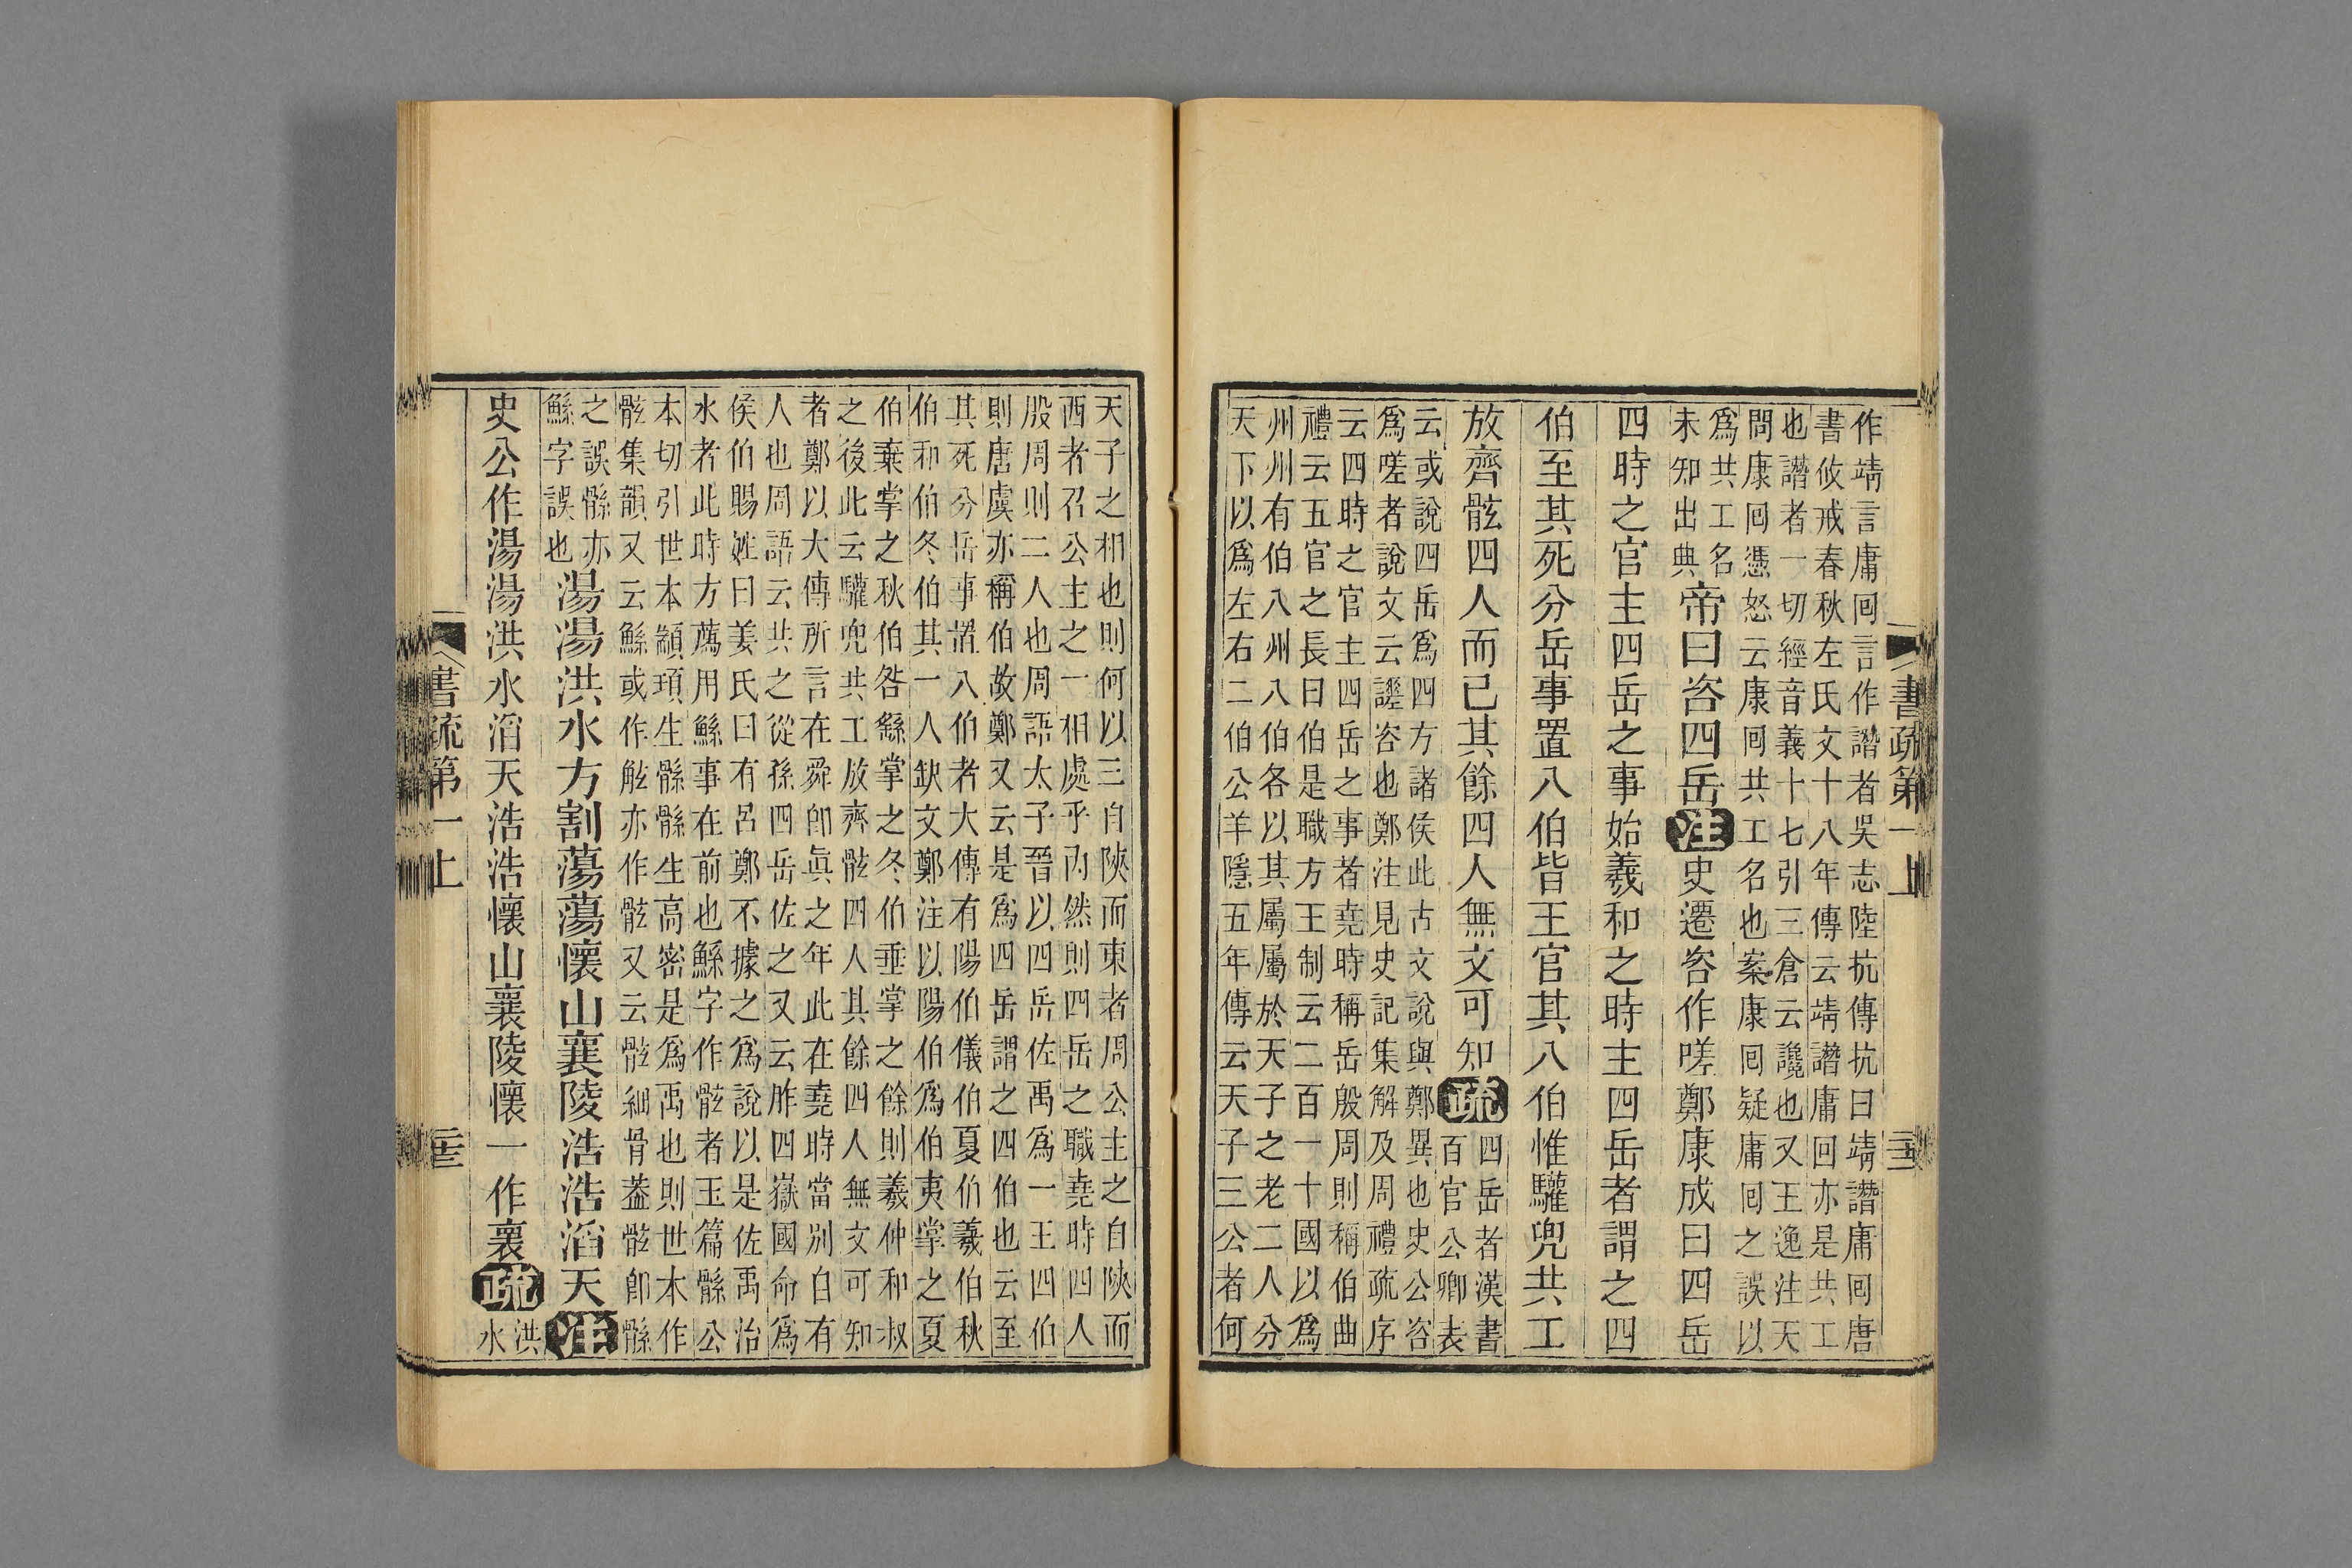 書疏第一上
作靖言庸回言作譖者吳志陸抗傳抗曰靖譖庸回唐
書攸戒春秋左氏文十八年傳云靖譖庸回亦是共工
也譖者一切經音義十七引三倉云讒也又王逸注天
問康回憑怒云康回共工名也案康回疑庸回之誤以
爲共工名
未知出典
帝曰咨四岳注史遷咨作嗟鄭康成曰四岳
四時之官主四岳之事始羲和之時主四岳者謂之四
伯至其死分岳事置八伯皆王官其八伯惟驩兜共工
放齊骸四人而已其餘四人無文可知疏
四岳者漢書
百官公卿表
云或說四岳爲四方諸侯此古文說與鄭異也史公咨
爲嗟者說文云謯咨也鄭注見史記集解及周禮疏序
云四時之官主四岳之事者堯時稱岳殷周則稱伯曲
禮云五官之長曰伯是職方王制云二百一十國以爲
州州有伯八州八伯各以其屬屬於天子之老二人分
天下以爲左右二伯公羊隱五年傳云天子三公者何
天子之相也則何以三自陝而東者周公主之自陝而
西者召公主之一相處乎內然則四岳之職堯時四人
殷周則二人也周語太子晉以四岳佐禹爲一王四伯
則唐虞亦稱伯故鄭又云是爲四岳謂之四伯也云至
其死分岳事置八伯者大傳有陽伯儀伯夏伯羲伯秋
伯和伯冬伯其一人缺文鄭注以陽伯爲伯夷掌之夏
伯棄掌之秋伯咎繇掌之冬伯垂掌之餘則羲仲和叔
之後此云驩兜共工放齊骸四人其餘四人無文可知
者鄭以大傳所言在舜卽眞之年此在堯時當別自有
人也周語云共之從孫四岳佐之又云胙四嶽國命爲
侯伯賜姓曰姜氏曰有呂鄭不據之爲說以是佐禹治
水者此時方薦用鯀事在前也鯀字作骸者玉篇骸公
本切引世本顓頊生骸骸生高密是爲禹也則世本作
骸集韻又云鯀或作䱁亦作骸又云骸細骨葢骸卽骸
之誤骸亦
鯀字誤也
湯湯洪水方割蕩蕩懷山襄陵浩浩滔天注
史公作湯湯洪水滔天浩浩懷山襄陵懷一作褱疏
洪
水
書疏第一上